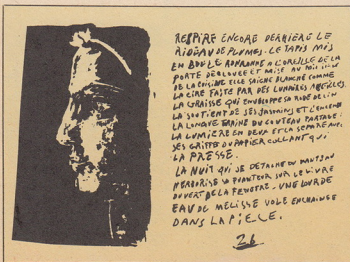 RESPIRE ENCORE DERRIÈRE LE
RIDEAU DE PLUMES. LE TAPIS MIS
EN BOULE RONRONNE A L'OREILLE DE LA
PORTE DÉCLOUÉE ET MISE AU
DE LA CUISINE ELLE SAIGNE BLANCHE COMME
LA CIRE FAITE PAR DES LUNAIRES ABEILLES.
LA GRAISSE QUI ENVELOPPE SA ROBE DE LIN
LA SOUTIENT DE SES JASMINS ET L'ENCENS
LA LONGUE TRAINE DU COUTEAU PARTAGE
LA LUMIÈRE EN DEUX ET LA SEPARE AVEC
SES GRIFFES DU PAPIER COLLANT QUI
LA PRESSE.
LA NUIT QUI SE DÉTACHE DU MANTEAU
HERBORISE SA PUANTEUR SUR LE LIVRE
OUVERT DE LA FENETRE - UNE LOURDE
EAU DE MELISSE VOLE ENCHAINEE
DANS LA PIECE.
26